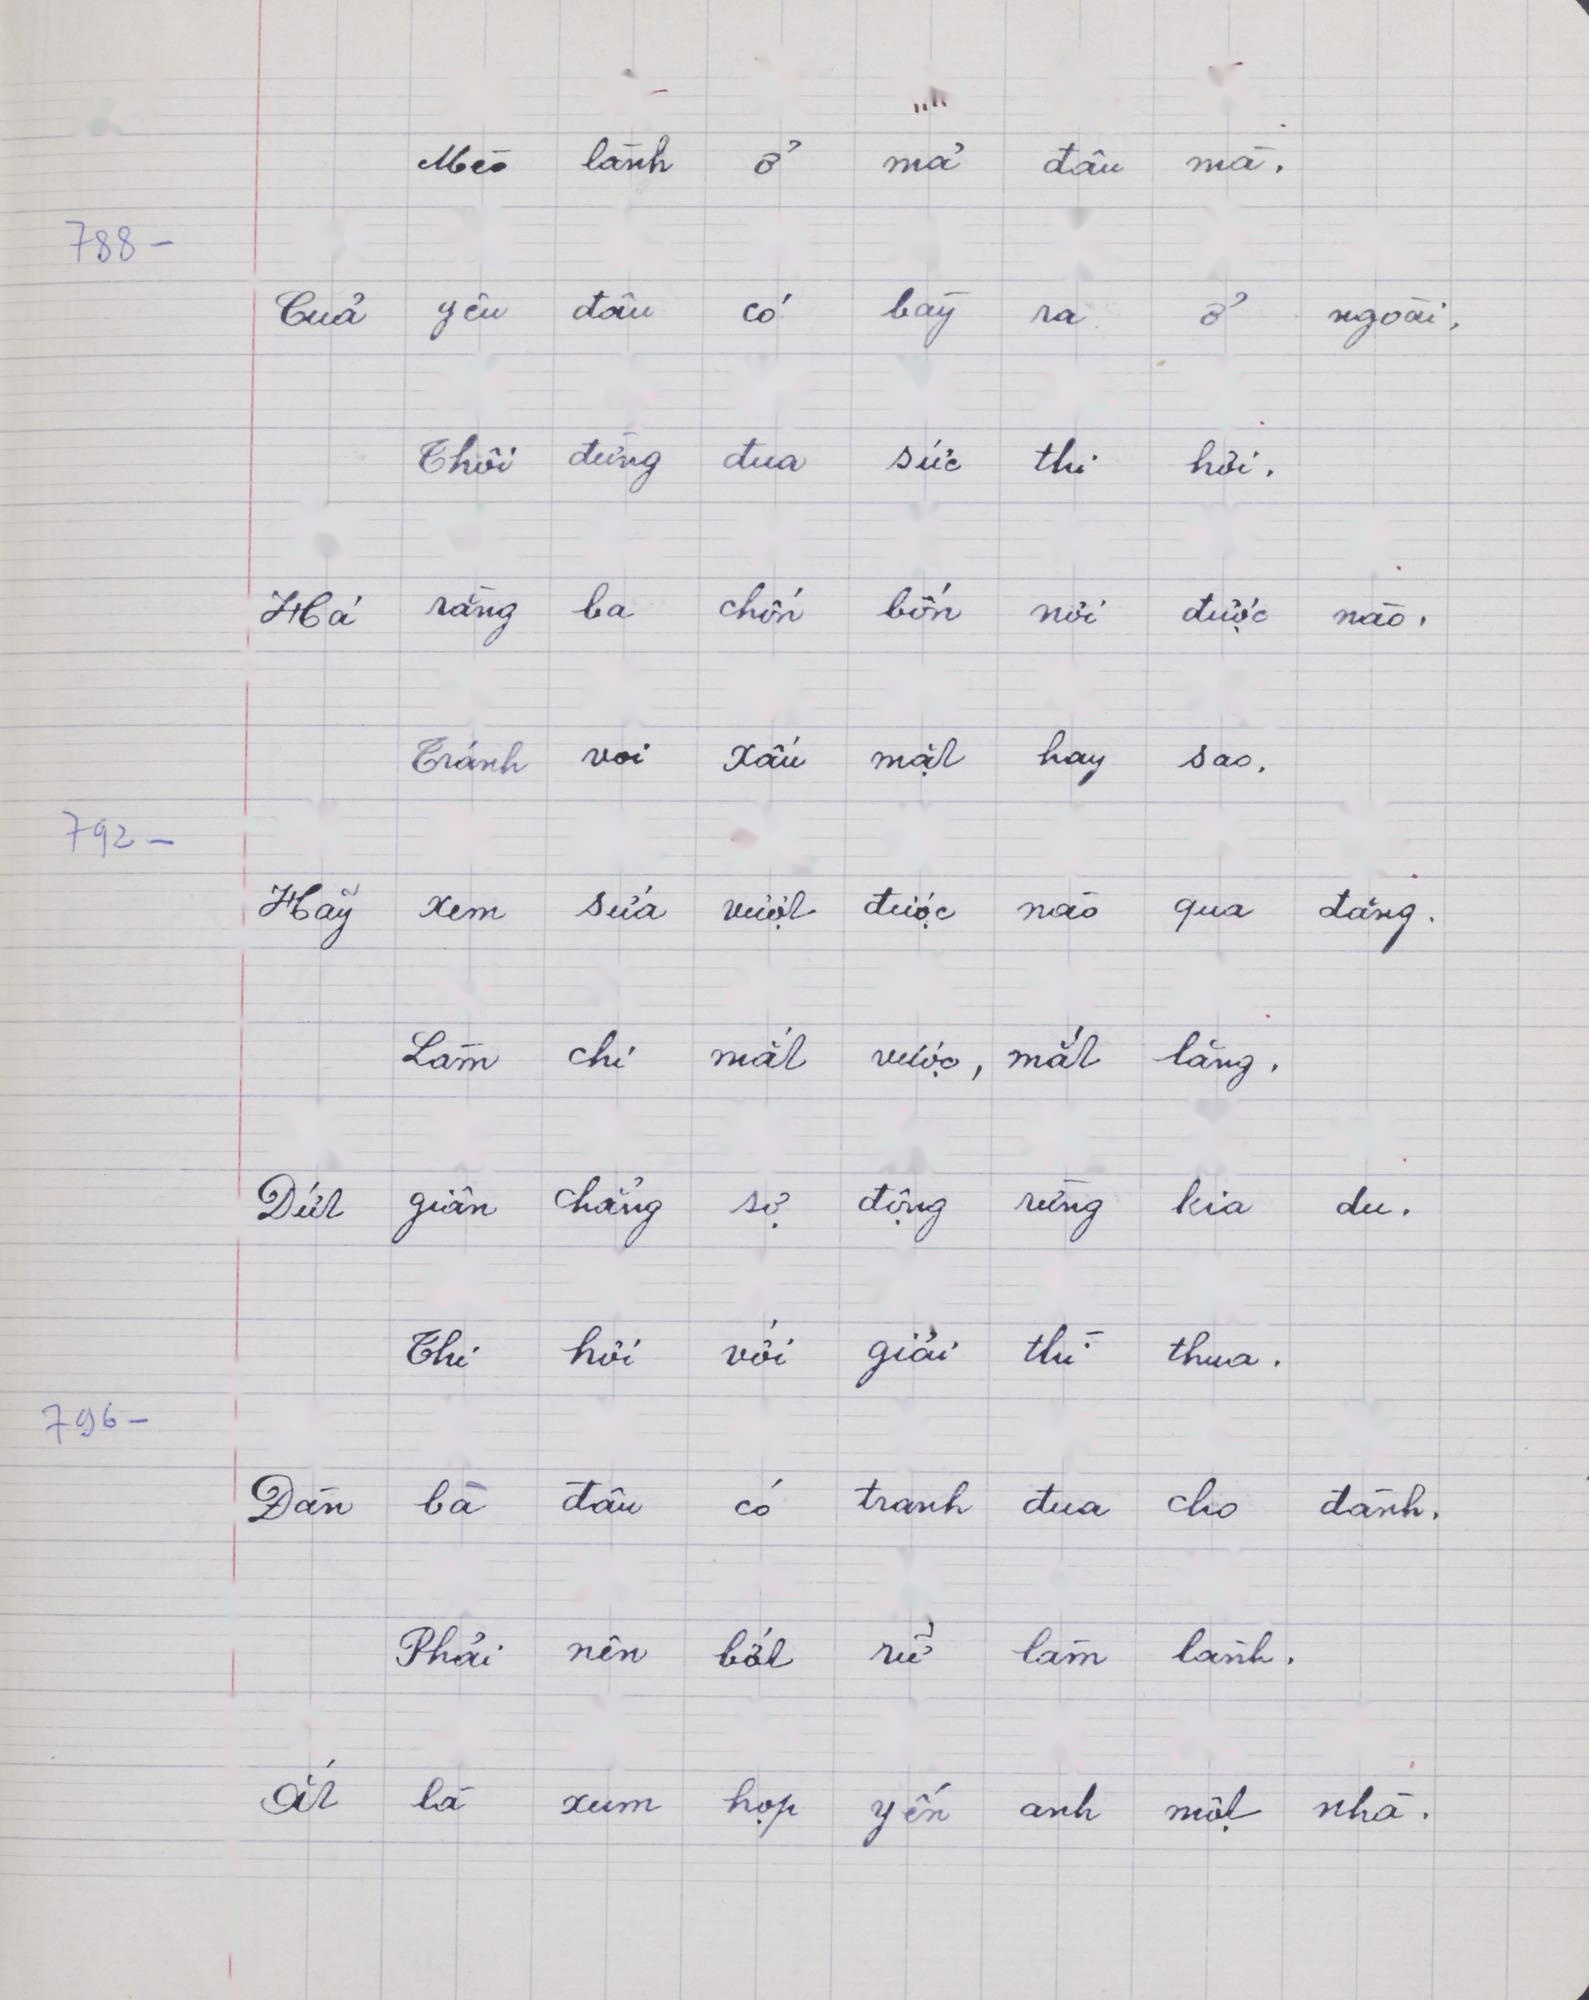 Mèo lành ở mả đâu mà.
788-
Cuả yêu đâu có baỳ ra ở ngoài.
Thôi đừng đua sức thi hơi.
Há rằng ba chốn bốn nơi được nào.
Tránh voi xấu mặt hay sao.
792-
Haỹ xem sứa vượt được nào qua đăng.
Làm chi mất vược, mất lăng.
Dứt giân chẳng sợ động rừng kia du.
Thi hơi với giải thì thua.
796-
Đàn bà đâu có tranh đua cho đành.
Phải nên bớt rử làm lành.
Ắt là xum họp yến anh một nhà.